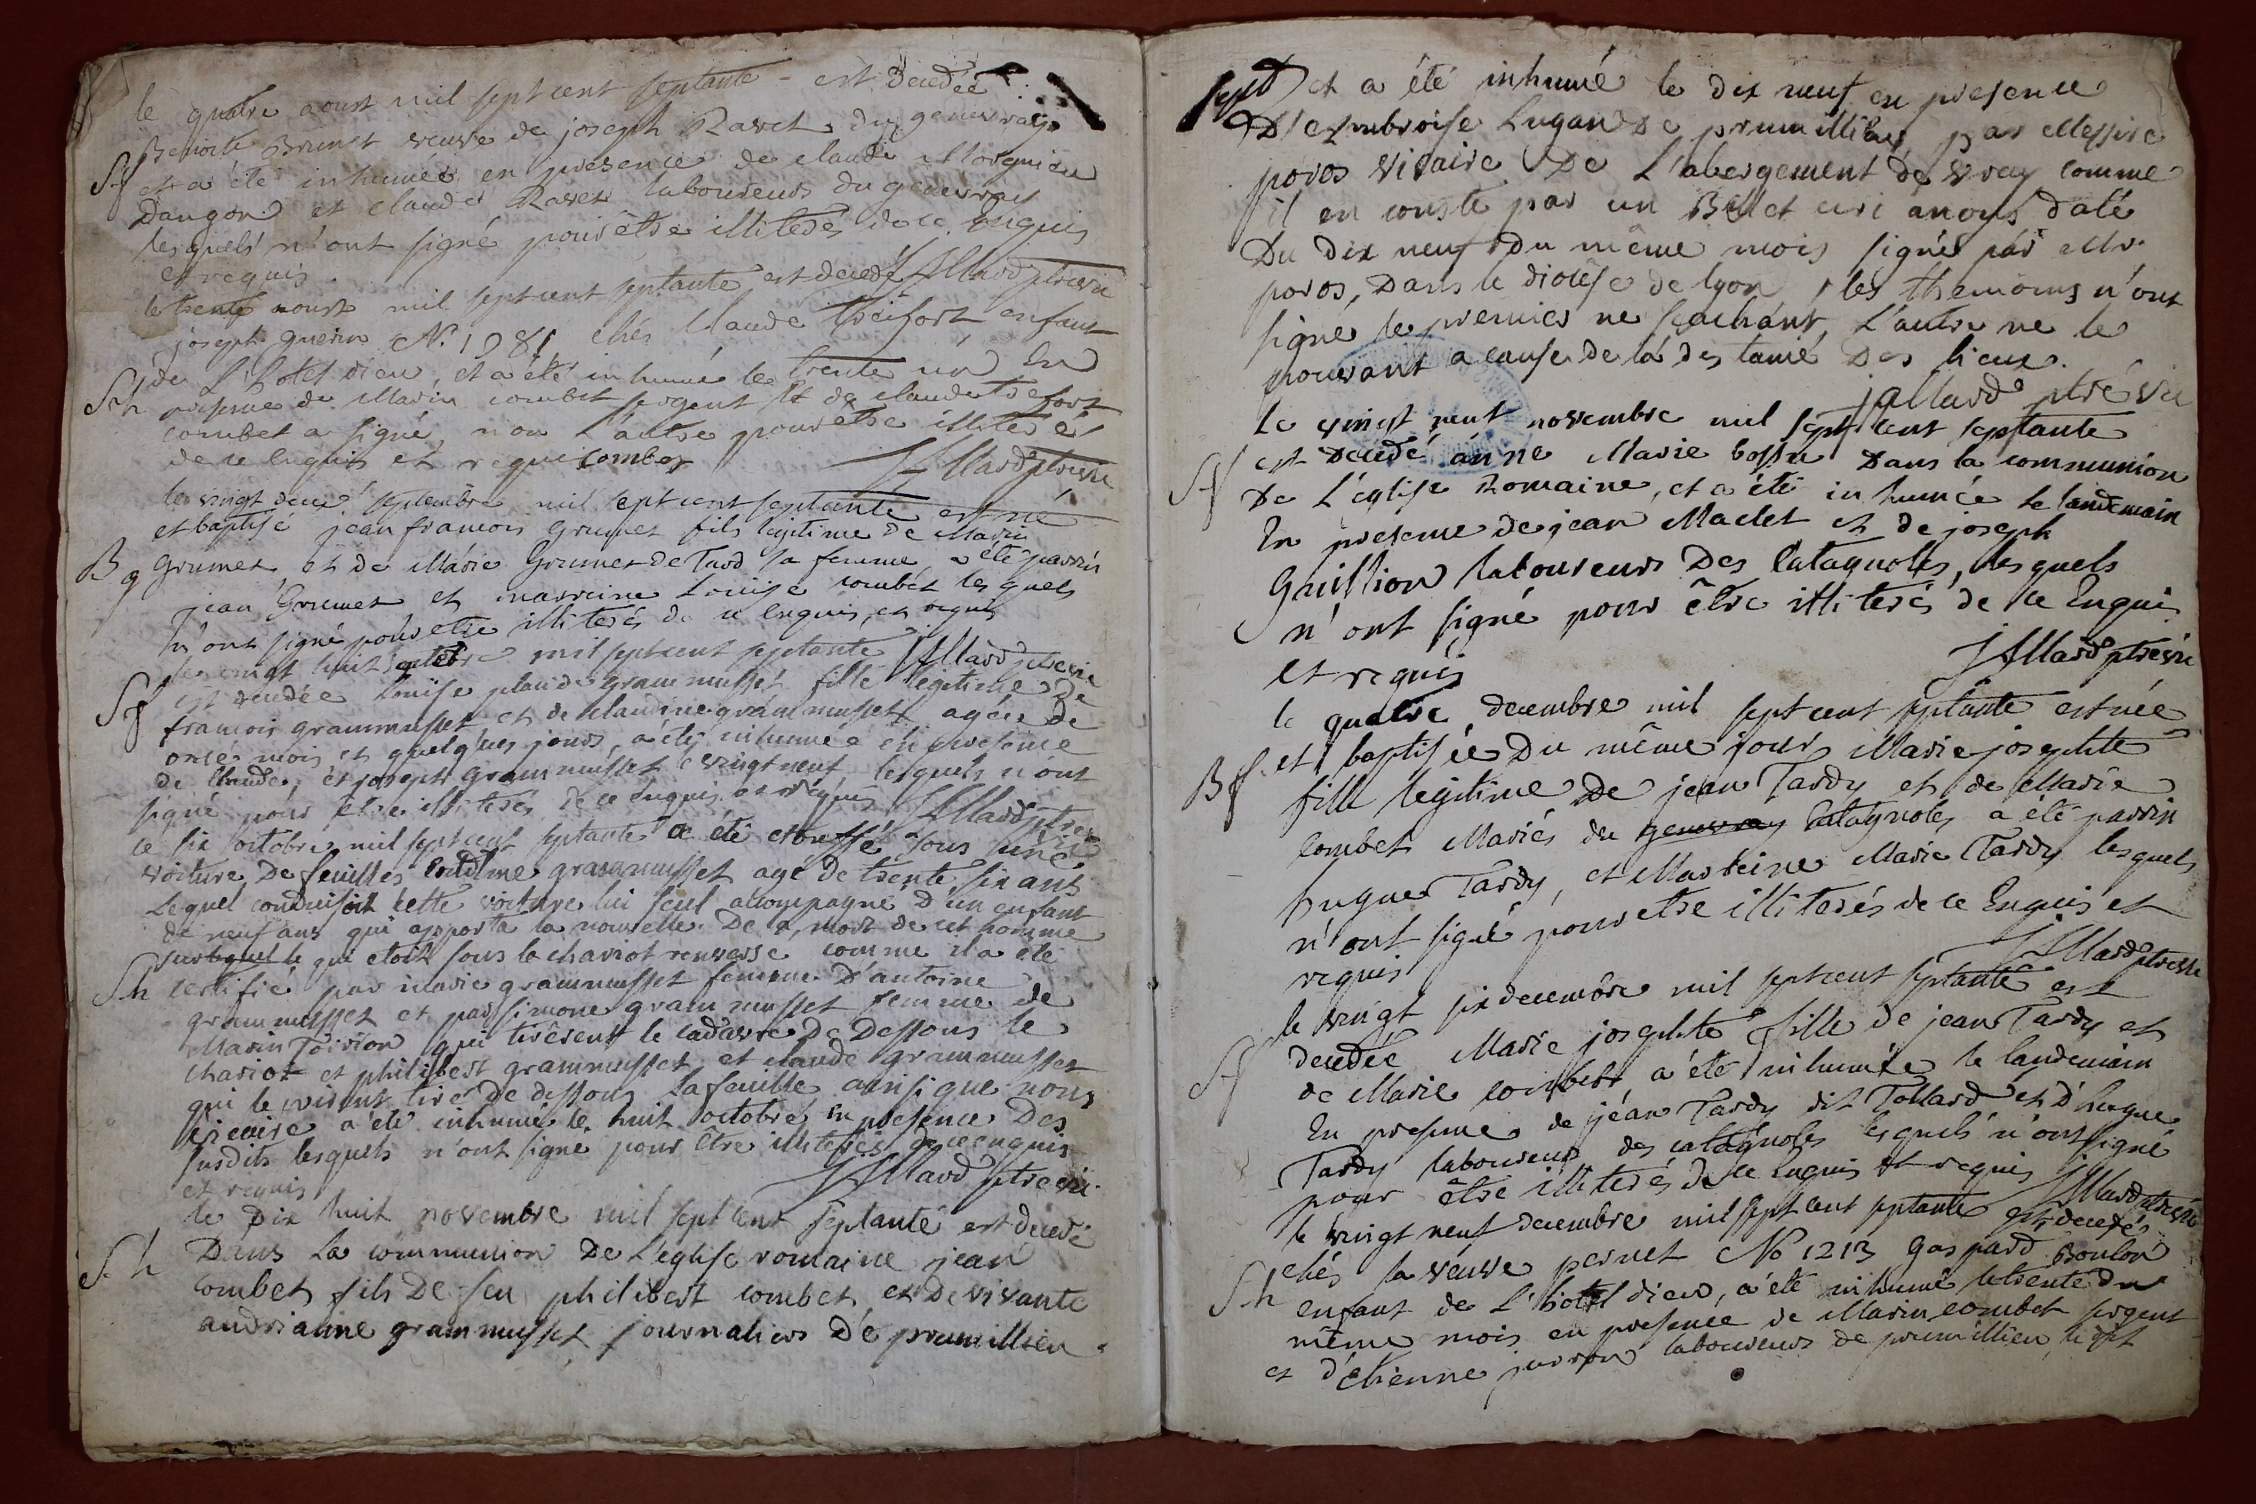 le quatre aoust mil sept cent septante - est decedée
Benoite Brunet veuve de joseph Ravet du genevray
Sf et a été inhumée en presence de claude Morgnieu
Dangon et claude Ravet laboureurs du genevray
lesquels n'ont signé pour être illiterés de ce enquis
et requis. jallard ptre vic
le trente aoust mil sept cent septante est decedé
joseph guerin N. 1981 chés Claude treffort enfant
de L'hotel dieu, et a été inhumé le trente un En
Sch presence de Marin combet sergent et de claude trefort
combet a signé, non l'autre pour être illiteré
de ce enquis et requi combet jallard ptre vic
le vingt deux septembre mil sept cent septante est né
et baptisé jean francois grumet fils legitime de Marin
Bg Grumet et de Marie Grumet de Tard sa femme a été parrin
jean Grumet et marreine Louise combet lesquels
n'ont signé pour etre illiterés de ce enquis, et requis
jallard ptre vic
le vingt huit septembre mil sept cent septante
Sf est decedée Louise plaude grammusset fille legitime de
francois grammusset et de claudine grammusset agée de
onse mois et quelques jours, a été inhumée en presence
de Claude, et joseph grammusset vingt neuf lesquels n'ont
signé pour etre illiterés de ce enquis et requis jallard ptre vic
le six octobre mil sept cent septante a été etouffé sous une
voiture De feuilles grammusset agé De trente six ans
Lequel conduisoit cette voiture lui seul accompagné D'un enfant
de neuf ans qui apporta la nouvelle De la mort de cet homme
sur lequel le qui etoit sous le chariot renversé comme il a été
Sh certifié par marie grammusset femme D'antoine
grammusset et par simone grammusset femme de
Marin Poirion qui tirerent le cadavre De Dessous le
chariot et philibert grammusset et claude grammusset
qui le virent tiré De dessous La feuille ainsi que nous
vicaire a été inhumé le huit octobre en presence Des
susdits lesquels n'ont signé pour être illiterés de ce enquis
et requis jallard ptre vic
le Dix huit novembre mil sept cent septante est decedé
Sh Dans La communion De L'eglise romaine jean
combet fils De feu philibert combet et De vivante
andrianne grammusset journaliers De prumillieu
sept et a été inhumé le dix neuf en presence
D'Ambroise Lugan De prumillieu par Messire
poros vicaire De L'abergement de vrey comme
il en conste par un Billet ecri a nous daté
Du dix neuf du même mois signé par Mr.
poros, Dans le diocése de lyon, les themoins n'ont
signé le premier ne scachant, L'autre ne le
pouvant a cause de la destanié Des lieux.
jallard ptre vic
Le vingt neuf novembre mil sept cent septante
Sf est decedé anne Marie bossu Dans la communion
De L'église Romaine, et a été inhumée le landemain
En presence de jean Maclet et de joseph
Guillion laboureurs Des Catagnoles, lesquels
n'ont signé pour être illiterés de ce Enquis
et requis jallard ptre vic
le quatre decembre mil sept cent septante est née
Bf. et baptisée Du même jour Marie josephte
fille legitime De jean Tardy et de Marie
Combet Mariés du genevray Catagnoles a été parrin
hugue Tardy, et Marreine Marie Tardy lesquels
n'ont signé pour etre illiterés de ce Enquis et
requis jallard ptre vic
le vingt six decembre mil sept cent septante est
Sf decedée Marie josephte fille de jean Tardy et
de Marie combet, a été inhumée le landemain
En presence de jean Tardy dit Tollard et D'hugue
Tardy laboureurs des catagnoles lesquels n'ont signé
pour être illiterés de ce enquis et requis jallard ptre vic
le vingt neuf decembre mil sept cent septante est decedés
chés la veuve pernet No 1213 gaspard Boulon
Sh enfant de L'hotel dieu, a été inhumé le trente du
même mois en presence de Marin combet sergent
et d'étienne jurron laboureurs de prumillieu, le dit